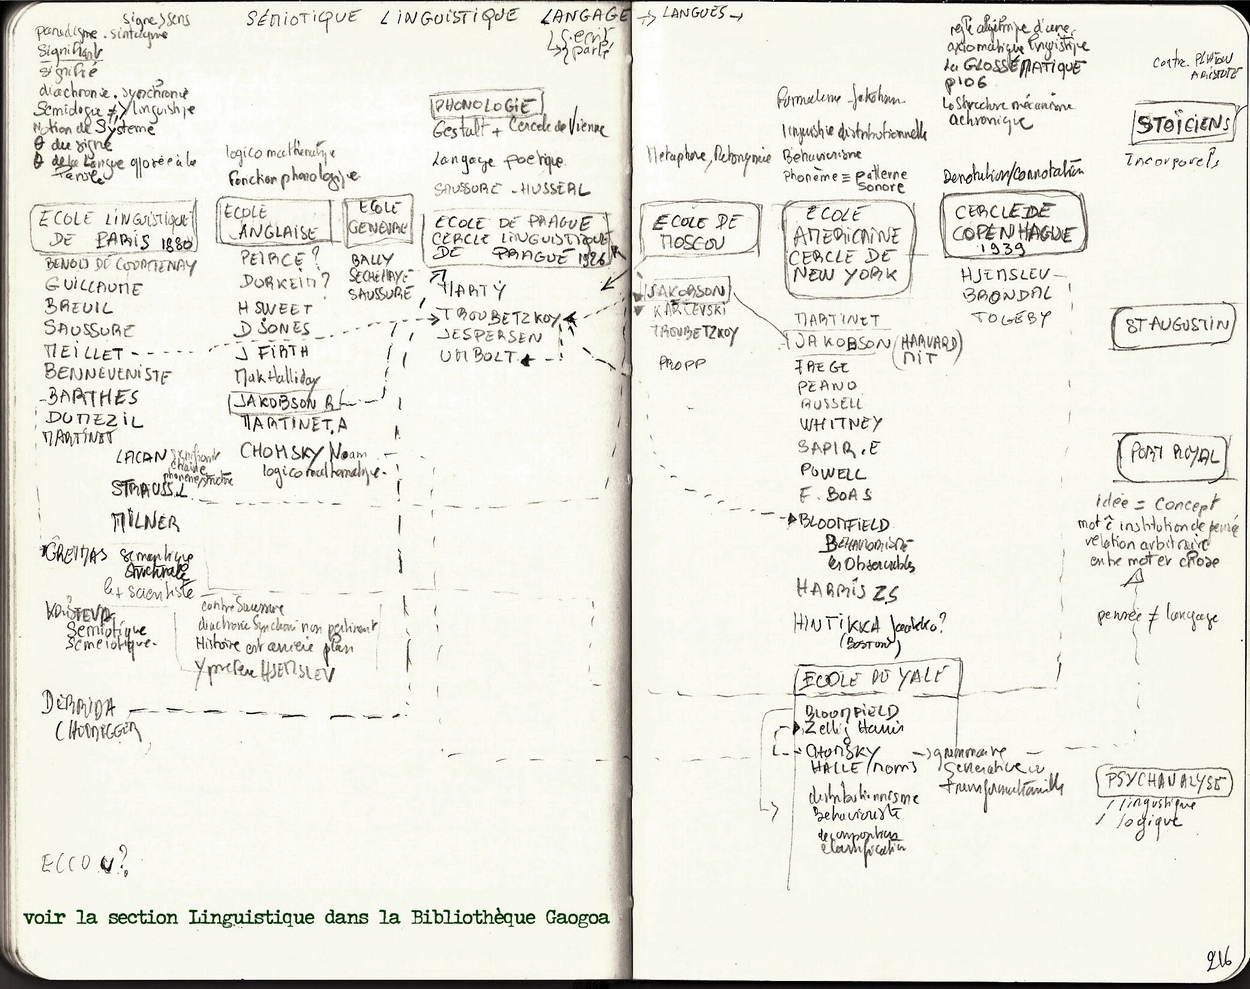 SÉMIOTIQUE LINGUISTIQUE LANGAGE → LANGUES →
écrit
parlé
signe/sens
paradigme. sintagme
Signifiant
signifié
diachronie. synchronie
Sémiologie ≠ linguistique
Notion de Système
du signe
de la Langue opposée à la
Parole
ECOLE LINGUISTIQUE
DE PARIS 1880
BENOIS DE COURTENAY
GUILLAUME
BREUIL
SAUSSURE
MEILLET
BENNEVENISTE
BARTHES
DUMEZIL
MARTINET
LACAN signifiant
chaîne
STRAUSS.L
MILNER
GREIMAS sémantique
structurale
le + scientiste
KRISTEVA
Sémiotique
Séméiotique.
contre Saussure
diachronie Synchronie non pertinent
Histoire est arrière plan
préfère HJEMSLEV
DERRIDA
ECCO U?
logico mathématique
fonction phonologique
ECOLE
ANGLAISE
PEIRCE?
DURKEIM?
H SWEET
D JONES
J FIRTH
Mak Halliday
JAKOBSON R
MARTINET.A
CHOMSKY Noam
logico mathématique.
ECOLE
GENEVRE
BALLY
SECHEHAYE
SAUSSURE
PHONOLOGIE
Gestalt + Cercle de Vienne
Langage poétique
SAUSSURE - HUSSERL
ECOLE DE PRAGUE
CERCLE LINGUISTIQUE
DE PRAGUE 1926
MARTY
TROUBETZKOY
JESPERSEN
UMBOLT
Métaphore, Métonymie
ECOLE DE
MOSCOU
JAKOBSON
KARCEVSKI
TROUBETZKOY
PROPP
Formalisme - Jakobson
linguistique distributionnelle
Behaviorisme
Phonème = patterne
sonore
ECOLE
AMERICAINE
CERCLE DE
NEW YORK
MARTINET
JAKOBSON (HARVARD)
MIT
FREGE
PEANO
RUSSELL
WHITNEY
SAPIR.E
POWELL
F. BOAS
BLOOMFIELD
BEHAVIORISTE
les Observables
HARRIS ZS
HINTIKKA Jaakko?
(BOSTON)
ECOLE DE YALE
BLOOMFIELD
Zellig Harris
CHOMSKY → grammaire
générative ou
transformationnelle
HALLE/MORRIS
distributionnisme
Behavioriste
décomposition
classification
règle algébrique d'une
axiomatique linguistique
La GLOSSÉMATIQUE
p106
La Structure mécanisme
achronique
Dénotation/Connotation
CERCLE DE
COPENHAGUE
1939
HJEMSLEV
BRONDAL
TOGEBY
contre PLATON
ARISTOTE
STOÏCIENS
Incorporels
ST AUGUSTIN
PORT ROYAL
idée = concept
mot = institution de pensée
relation arbitraire
entre mot et chose
pensée ≠ langage
PSYCHANALYSE
/ linguistique
/ logique
voir la section Linguistique dans la Bibliothèque Gaogoa
216